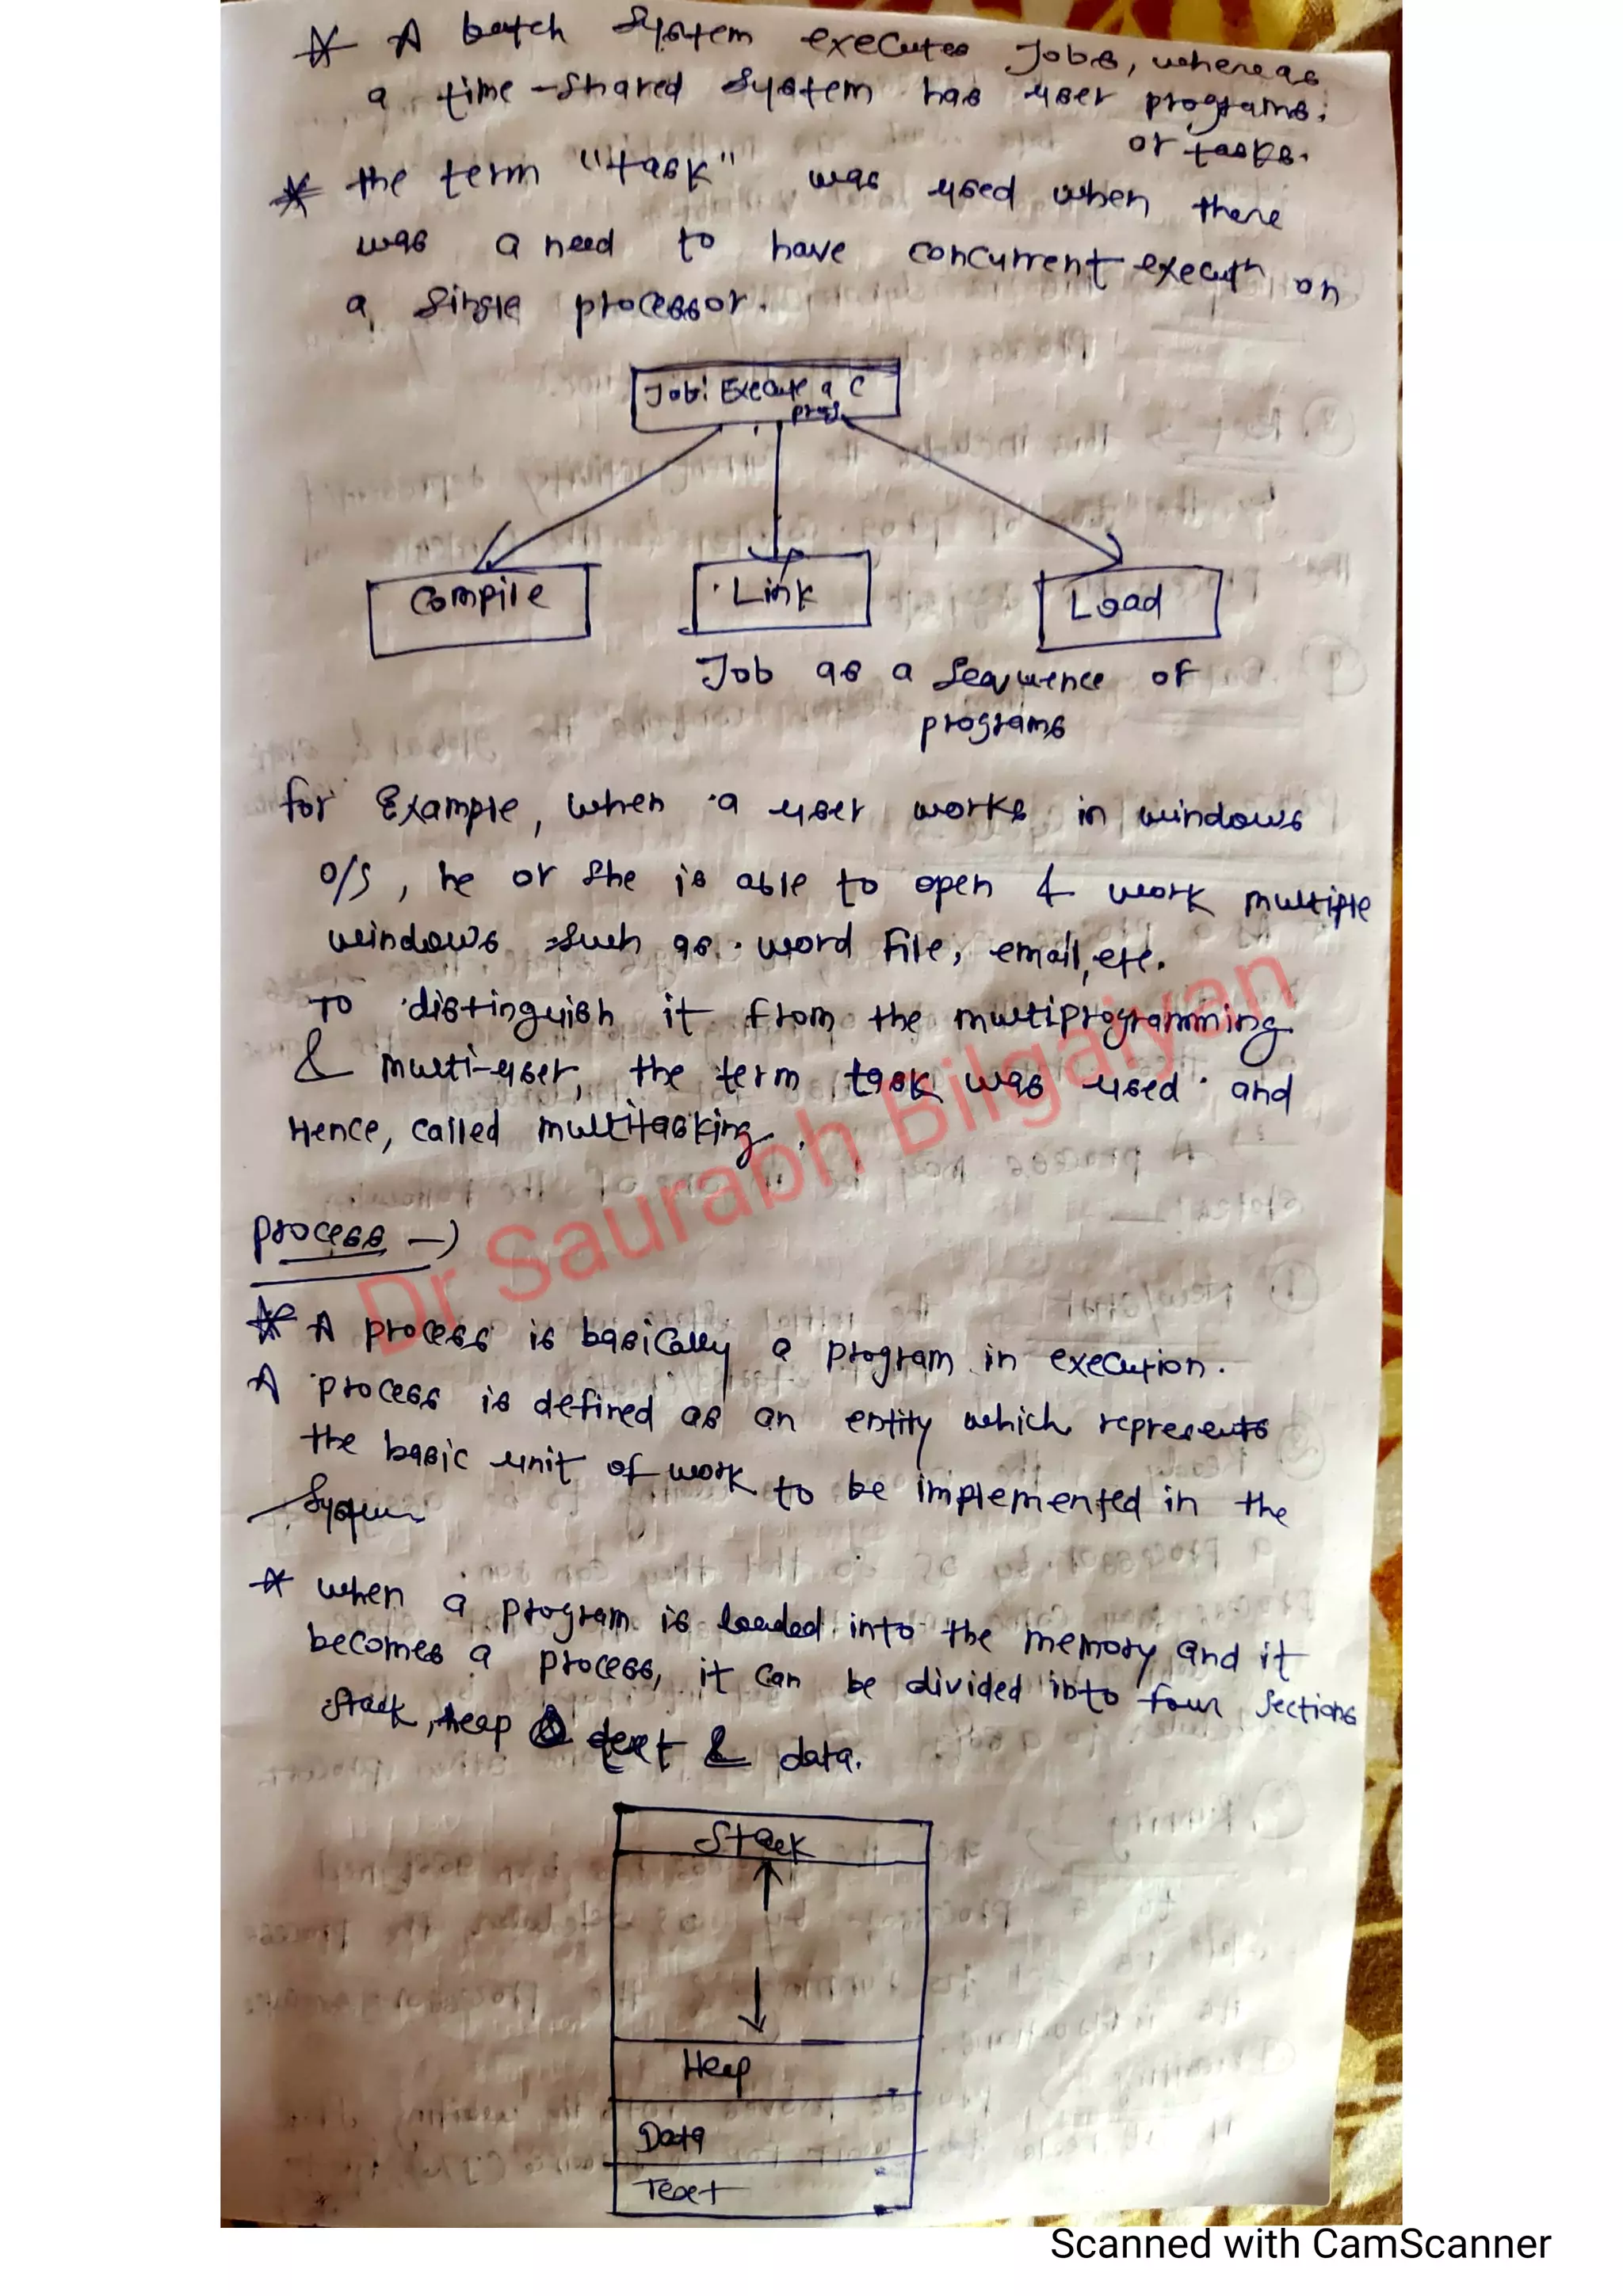 * A batch system executes Jobs, whereas
a time-shared system has user programs.
or tasks.
* the term "task" was used when there
was a need to have concurrent executn on
a single processor.
Job: Execute a C
prog
Compile
Link
Load
Job as a sequence of
programs
for Example, when a user works in windows
O/S, he or she is able to open & work multiple
windows such as word File, email, etc.
To distinguish it from the multiprogramming
& multi-user, the term task was used and
Hence, called multitasking.
Process →
* A process is basically a program in execution.
A process is defined as an entity which represents
the basic unit of work to be implemented in the
System
* when a program is loaded into the memory and it
becomes a process, it can be divided into four sections
stack, heap text & data.
Stack
Heap
Data
Text
Dr Saurabh Bilgaiyan
Scanned with CamScanner